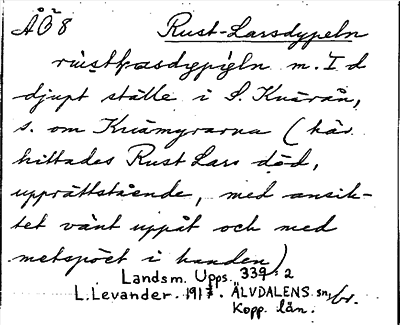 ÅÖ8 Rust-Larsdypeln
djupt ställe i S. Kvarån,
s. om Kvarnmyrarna (här
hittades Rust Lars död,
upprättstående, med ansik-
tet vänt uppåt och med
metspöet i handen)
Landsm. Upps. 339:2
L. Levander. 1917. ÄLVDALENS sn,
Kopp. län.